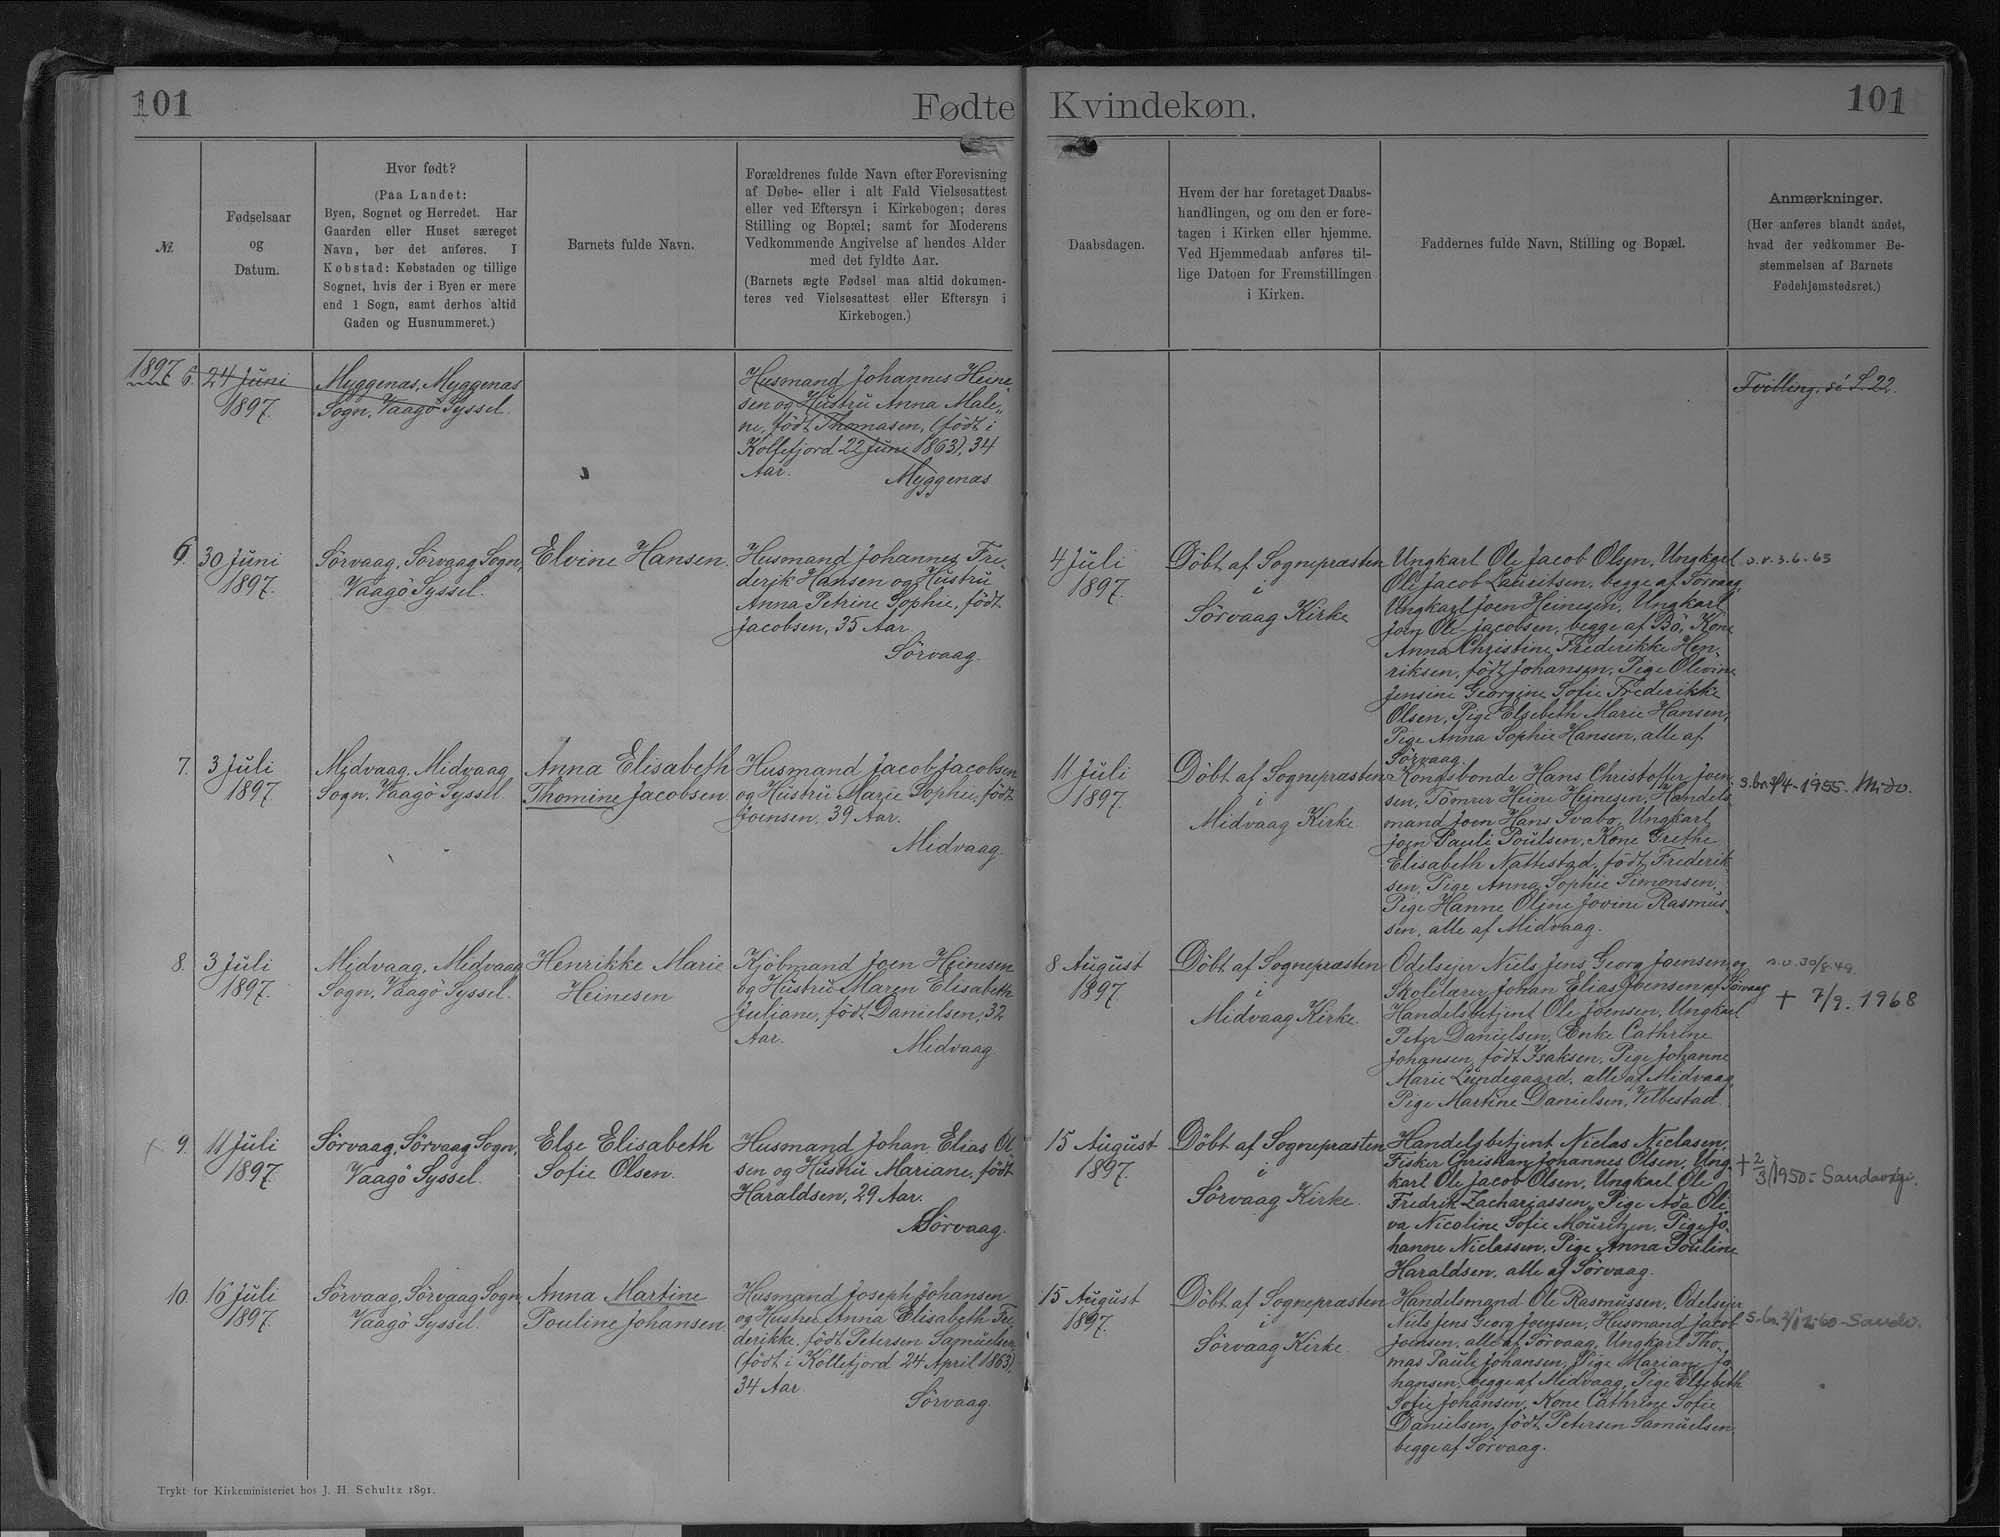 101
Fødte
Kvindekøn.
101
№.
Fødselsaar
og
Datum.
Hvor født?
(Paa Landet:
Byen, Sognet og Herredet. Har
Gaarden eller Huset særeget
Navn, bør det anføres. I
Købstad: Købstaden og tillige
Sognet, hvis der i Byen er mere
end 1 Sogn, samt derhos altid
Gaden og Husnummeret.)
Barnets fulde Navn.
Forældrenes fulde Navn efter Forevisning
af Døbe- eller i alt Fald Vielsesattest
eller ved Eftersyn i Kirkebogen; deres
Stilling og Bopæl; samt for Moderens
Vedkommende Angivelse af hendes Alder
med det fyldte Aar.
(Barnets ægte Fødsel maa altid dokumen-
teres ved Vielsesattest eller Eftersyn i
Kirkebogen.)
Daabsdagen.
Hvem der har foretaget Daabs-
handlingen, og om den er fore-
tagen i Kirken eller hjemme.
Ved Hjemmedaab anføres til-
lige Datoen for Fremstillingen
i Kirken.
Faddernes fulde Navn, Stilling og Bopæl.
Anmærkninger.
(Her anføres blandt andet,
hvad der vedkommer Be-
stemmelsen af Barnets
Fødehjemstedsret.)
1897
6.
24 Juni
1897.
Myggenæs, Myggenæs
Sogn, Vaagö Syssel.
Husmand Johannes Heine
sen og Hustru Anna Male„
ne, födt Thomasen, (födt i
Kollefjord 22 Juni 1863), 34
Aar.
Myggenæs
Tvilling, se S. 22.
6.
30 Juni
1897.
Sörvaag, Sörvaag Sogn,
Vaagö Syssel.
Elvine Hansen.
Husmand Johannes Fre
derik Hansen og Hustru
Anna Petrine Sophie, födt
Jacobsen, 35 Aar.
Sörvaag.
4 Juli
1897.
Döbt af Sognepræsten
i
Sörvaag Kirke
Ungkarl Ole Jacob Olsen, Ungkarl
Ole Jacob Lauritsen, begge af Sörvaag,
Ungkarl Joen Heinesen, Ungkarl
Joen Ole Jacobsen, begge af Bö, Kone
Anna Christine Frederikke Hen„
riksen, födt Johansen, Pige Olevine
Jensine Georgine Sofie Frederikke
Olsen, Pige Elsebeth Marie Hansen,
Pige Anna Sophie Hansen, alle af
Sörvaag.
s.v. 3.6.63
7.
3 Juli
1897.
Midvaag, Midvaag
Sogn, Vaagö Syssel.
Anna Elisabeth
Thomine Jacobsen
Husmand Jacob Jacobsen
og Hustru Marie Sophie, födt
Joensen, 39 Aar.
Midvaag.
11 Juli
1897.
Döbt af Sognepræsten
i
Midvaag Kirke
Kongsbonde Hans Christoffer Joen
sen, Tömrer Heine Heinesen, Handels
mand Joen Hans Svabo, Ungkarl
Joen Pauli Poulsen, Kone Grethe
Elisabeth Nattestad, födt Frederik
sen, Pige Anna Sophie Simonsen,
Pige Hanne Oline Jovine Rasmus„
sen, alle af Midvaag.
1955. Midv.
8.
3 Juli
1897.
Midvaag, Midvaag
Sogn, Vaagö Syssel.
Henrikke Marie
Heinesen
Kjöbmand Joen Heinesen
og Hustru Maren Elisabeth
Juliane, födt Danielsen, 32
Aar.
Midvaag
8 August
1897.
Döbt af Sognepræsten
i
Midvaag Kirke.
Odelsejer Niels Jens Georg Joensen og
Skolelærer Johan Elias Joensen af Sörvaag
Handelsbetjent Ole Joensen, Ungkarl
Peter Danielsen, Enke Cathrine
Johansen, födt Isaksen, Pige Johanne
Marie Lundegaard, alle af Midvaag,
Pige Martine Danielsen, Velbestad.
s.v. 30/8.49.
† 7/9. 1968
9.
11 Juli
1897.
Sörvaag, Sörvaag Sogn,
Vaagö Syssel.
Else Elisabeth
Sofie Olsen.
Husmand Johan Elias Ol
sen og Hustru Mariane, födt
Haraldsen, 29 Aar.
Sörvaag.
15 August
1897.
Döbt af Sognepræsten
i
Sörvaag Kirke.
Handelsbetjent Niclas Niclasen,
Fisker Christian Johannes Olsen, Ung„
karl Ole Jacob Olsen, Ungkarl Ole
Fredrik Zachariassen, Pige Ada Ole
va Nicoline Sofie Mouritzen, Pige Jo„
hanne Niclassen, Pige Anna Pouline
Haraldsen, alle af Sörvaag.
† 2/3 1950 = Sandavági.
10.
16 Juli
1897.
Sörvaag, Sörvaag Sogn,
Vaagö Syssel.
Anna Martine
Pouline Johansen
Husmand Joseph Johansen
og Hustru Anna Elisabeth Fre
derikke, födt Petersen Samuelsen
(födt i Kollefjord 24 April 1863),
34 Aar.
Sörvaag.
15 August
1897.
Döbt af Sognepræsten
i
Sörvaag Kirke.
Handelsmand Ole Rasmussen, Odelsejer
Niels Jens Georg Joensen, Husmand Jacob
Joensen, alle af Sörvaag, Ungkarl Tho„
mas Pauli Johansen, Pige Mariane Jo
hansen, begge af Midvaag, Pige Elsebeth
Sofie Johansen, Kone Cathrine Sofie
Danielsen, födt Petersen Samuelsen,
begge af Sörvaag.
60 - Sandv.
Trykt for Kirkeministeriet hos J. H. Schultz 1891.